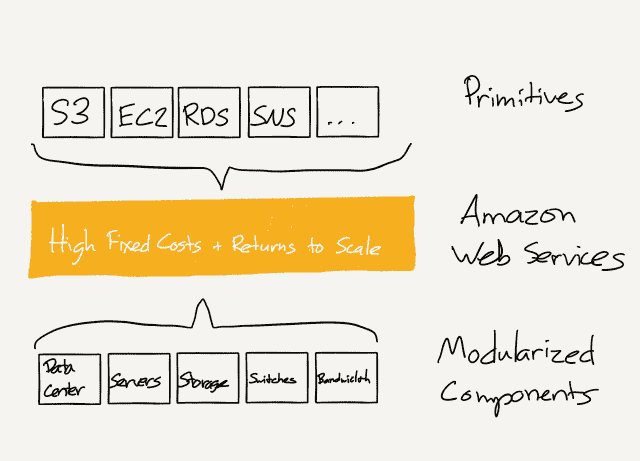 S3 EC2 RDS SNS ...
Primitives
High Fixed Costs + Returns to Scale
Amazon
Web Services
Data
Center
Servers
Storage
Switches
Bandwidth
Modularized
Components